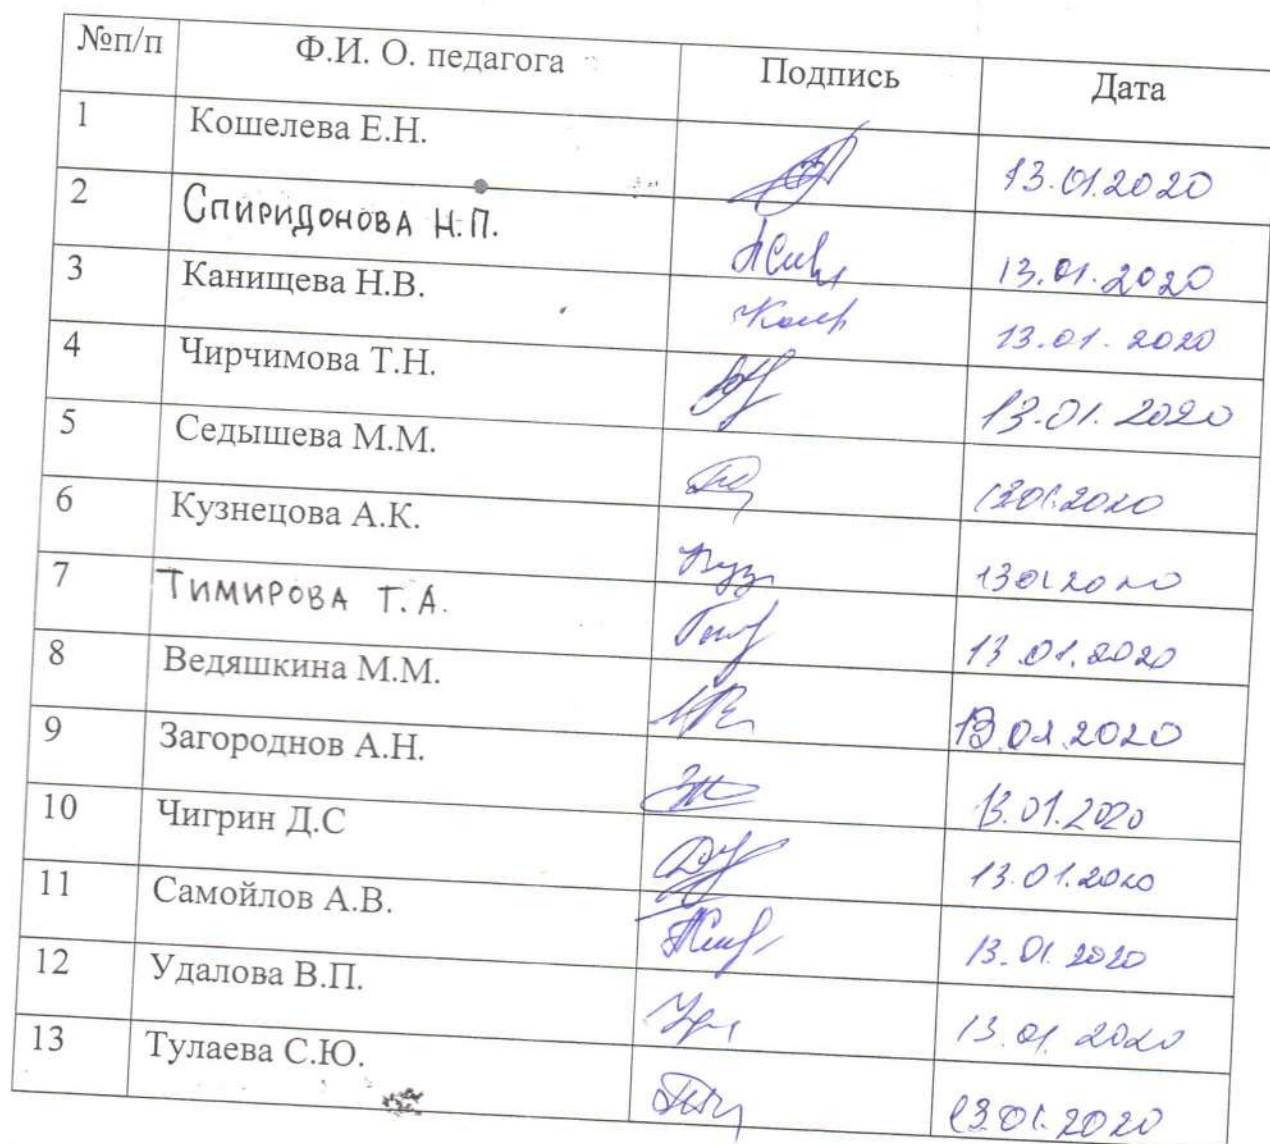 №п/п Ф.И. О. педагога Подпись Дата
1 Кошелева Е.Н. 13.01.2020
2 Спиридонова Н.П. 13.01.2020
3 Канищева Н.В. 13.01.2020
4 Чирчимова Т.Н. 13.01.2020
5 Седышева М.М. 13.01.2020
6 Кузнецова А.К. 13.01.2020
7 Тимирова Т.А. 13.01.2020
8 Ведяшкина М.М. 13.01.2020
9 Загороднов А.Н. 13.01.2020
10 Чигрин Д.С 13.01.2020
11 Самойлов А.В. 13.01.2020
12 Удалова В.П. 13.01.2020
13 Тулаева С.Ю. 13.01.2020